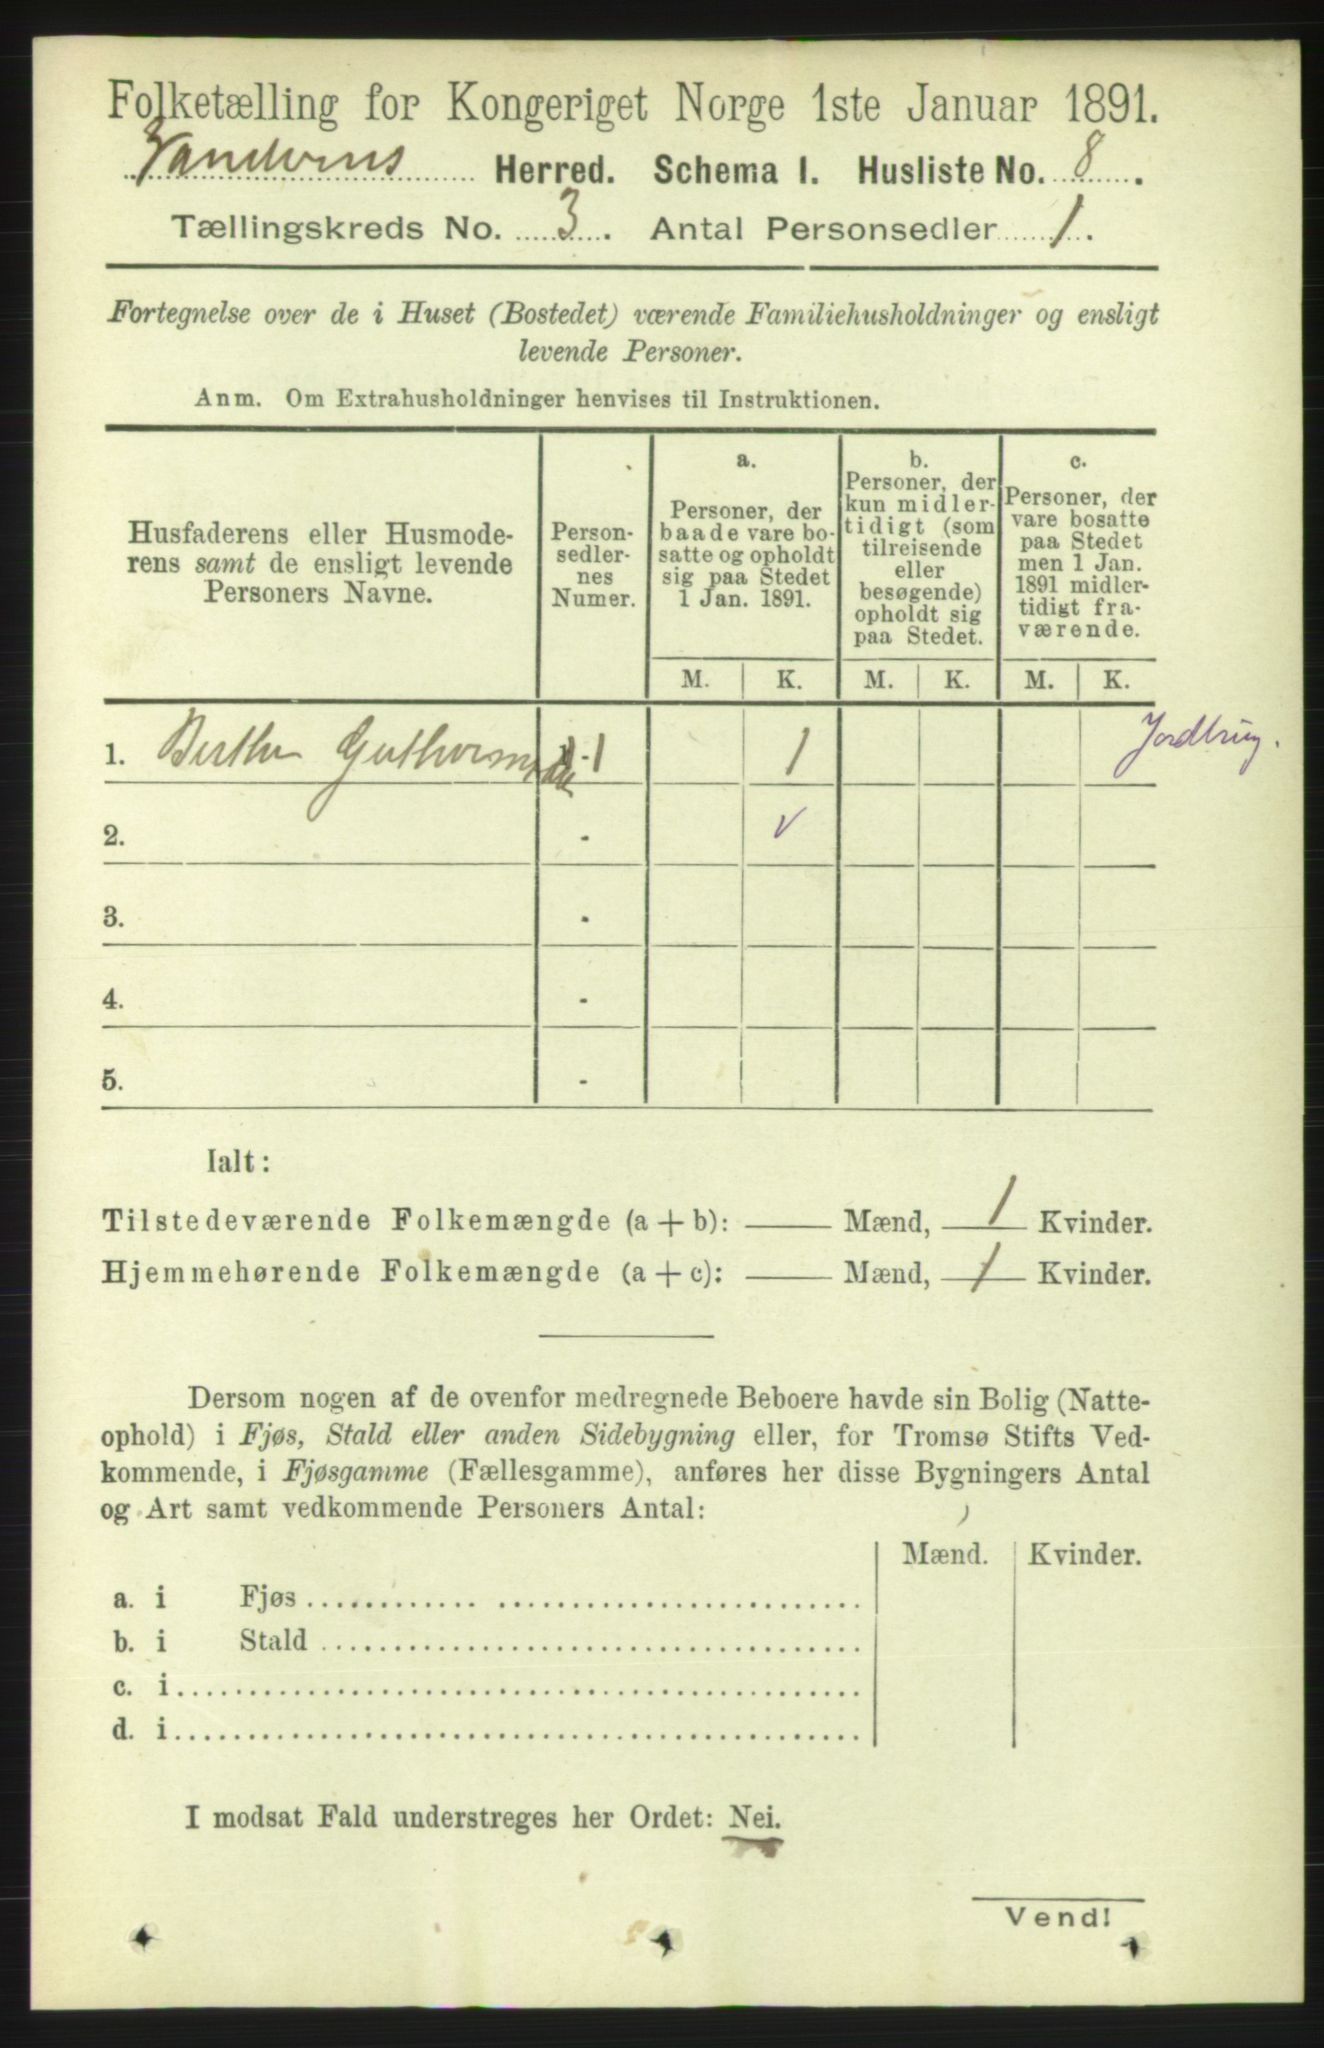 Folketælling for Kongeriget Norge 1ste Januar 1891.
Herred. Schema I. Husliste No. 8.
Tællingskreds No. 3. Antal Personsedler 1.
Fortegnelse over de i Huset (Bostedet) værende Familiehusholdninger og ensligt
levende Personer.
Anm. Om Extrahusholdninger henvises til Instruktionen.
Husfaderens eller Husmode-
rens samt de ensligt levende
Personers Navne.
Person-
sedler-
nes
Numer.
a.
Personer, der
baade vare bo-
satte og opholdt
sig paa Stedet
1 Jan. 1891.
b.
Personer, der
kun midler-
tidigt (som
tilreisende
eller
besøgende)
opholdt sig
paa Stedet.
c.
Personer, der
vare bosatte
paa Stedet
men 1 Jan.
1891 midler-
tidigt fra-
værende.
M. K. M. K. M. K.
1. Berthe 1 - 1 1 Jordbrug.
2. -
3. -
4. -
5. -
Ialt:
Tilstedeværende Folkemængde (a + b): Mænd, 1 Kvinder.
Hjemmehørende Folkemængde (a + c): Mænd, 1 Kvinder.
Dersom nogen af de ovenfor medregnede Beboere havde sin Bolig (Natte-
ophold) i Fjøs, Stald eller anden Sidebygning eller, for Tromsø Stifts Ved-
kommende, i Fjøsgamme (Fællesgamme), anføres her disse Bygningers Antal
og Art samt vedkommende Personers Antal:
Mænd. Kvinder.
a. i Fjøs
b. i Stald
c. i
d. i
I modsat Fald understreges her Ordet: Nei.
Vend!